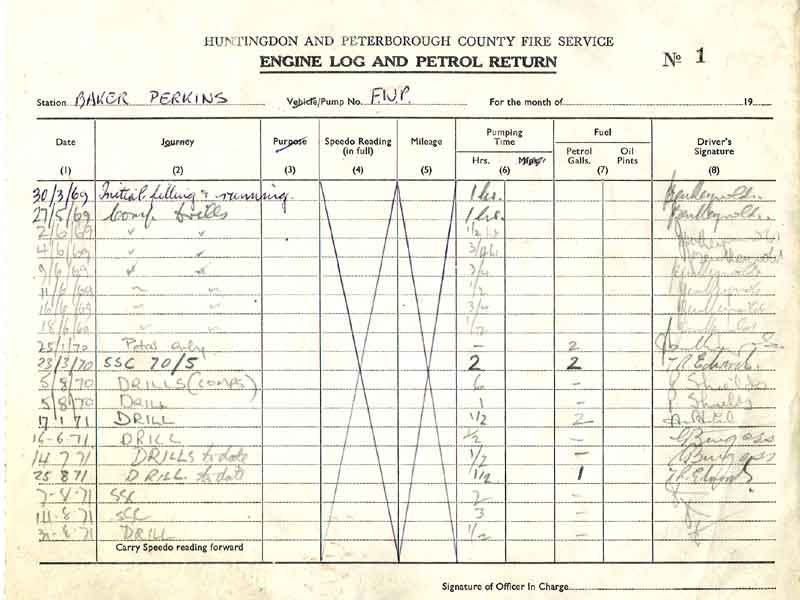 HUNTINGDON AND PETERBOROUGH COUNTY FIRE SERVICE
ENGINE LOG AND PETROL RETURN
No 1
Station BAKER PERKINS Vehicle/Pump No. F.W.P. For the month of 19
Date Journey Purpose Speedo Reading (in full) Mileage Pumping Time Fuel Driver's Signature
Hrs. Petrol Galls. Oil Pints
(1) (2) (3) (4) (5) (6) (7) (8)
30/3/69 Initial filling & running. 1 hr.
27/5/69 Comp. drills 1 hr.
2/6/69 " " 1/2 hr
4/6/69 " " 3/4 hr
9/6/69 " " 3/4
11/6/69 " " 1/2
16/6/69 " " 3/4
18/6/69 " " 1/2
25/1/70 Petrol only - 2
23/3/70 SSC 70/5 2 2
5/8/70 DRILLS (COMPS) 6 - P Shields
5/8/70 DRILL 1 - P Shields
17/1/71 DRILL 1/2 2
16-6-71 DRILL 1/2 - Burgess
14 7 71 DRILLS to date 1/2 - Burgess
25 8 71 DRILL to date 1/2 1
7-8-71 SSC 2
14-8-71 SSC 3
31-8-71 DRILL 1/2
Carry Speedo reading forward
Signature of Officer In Charge